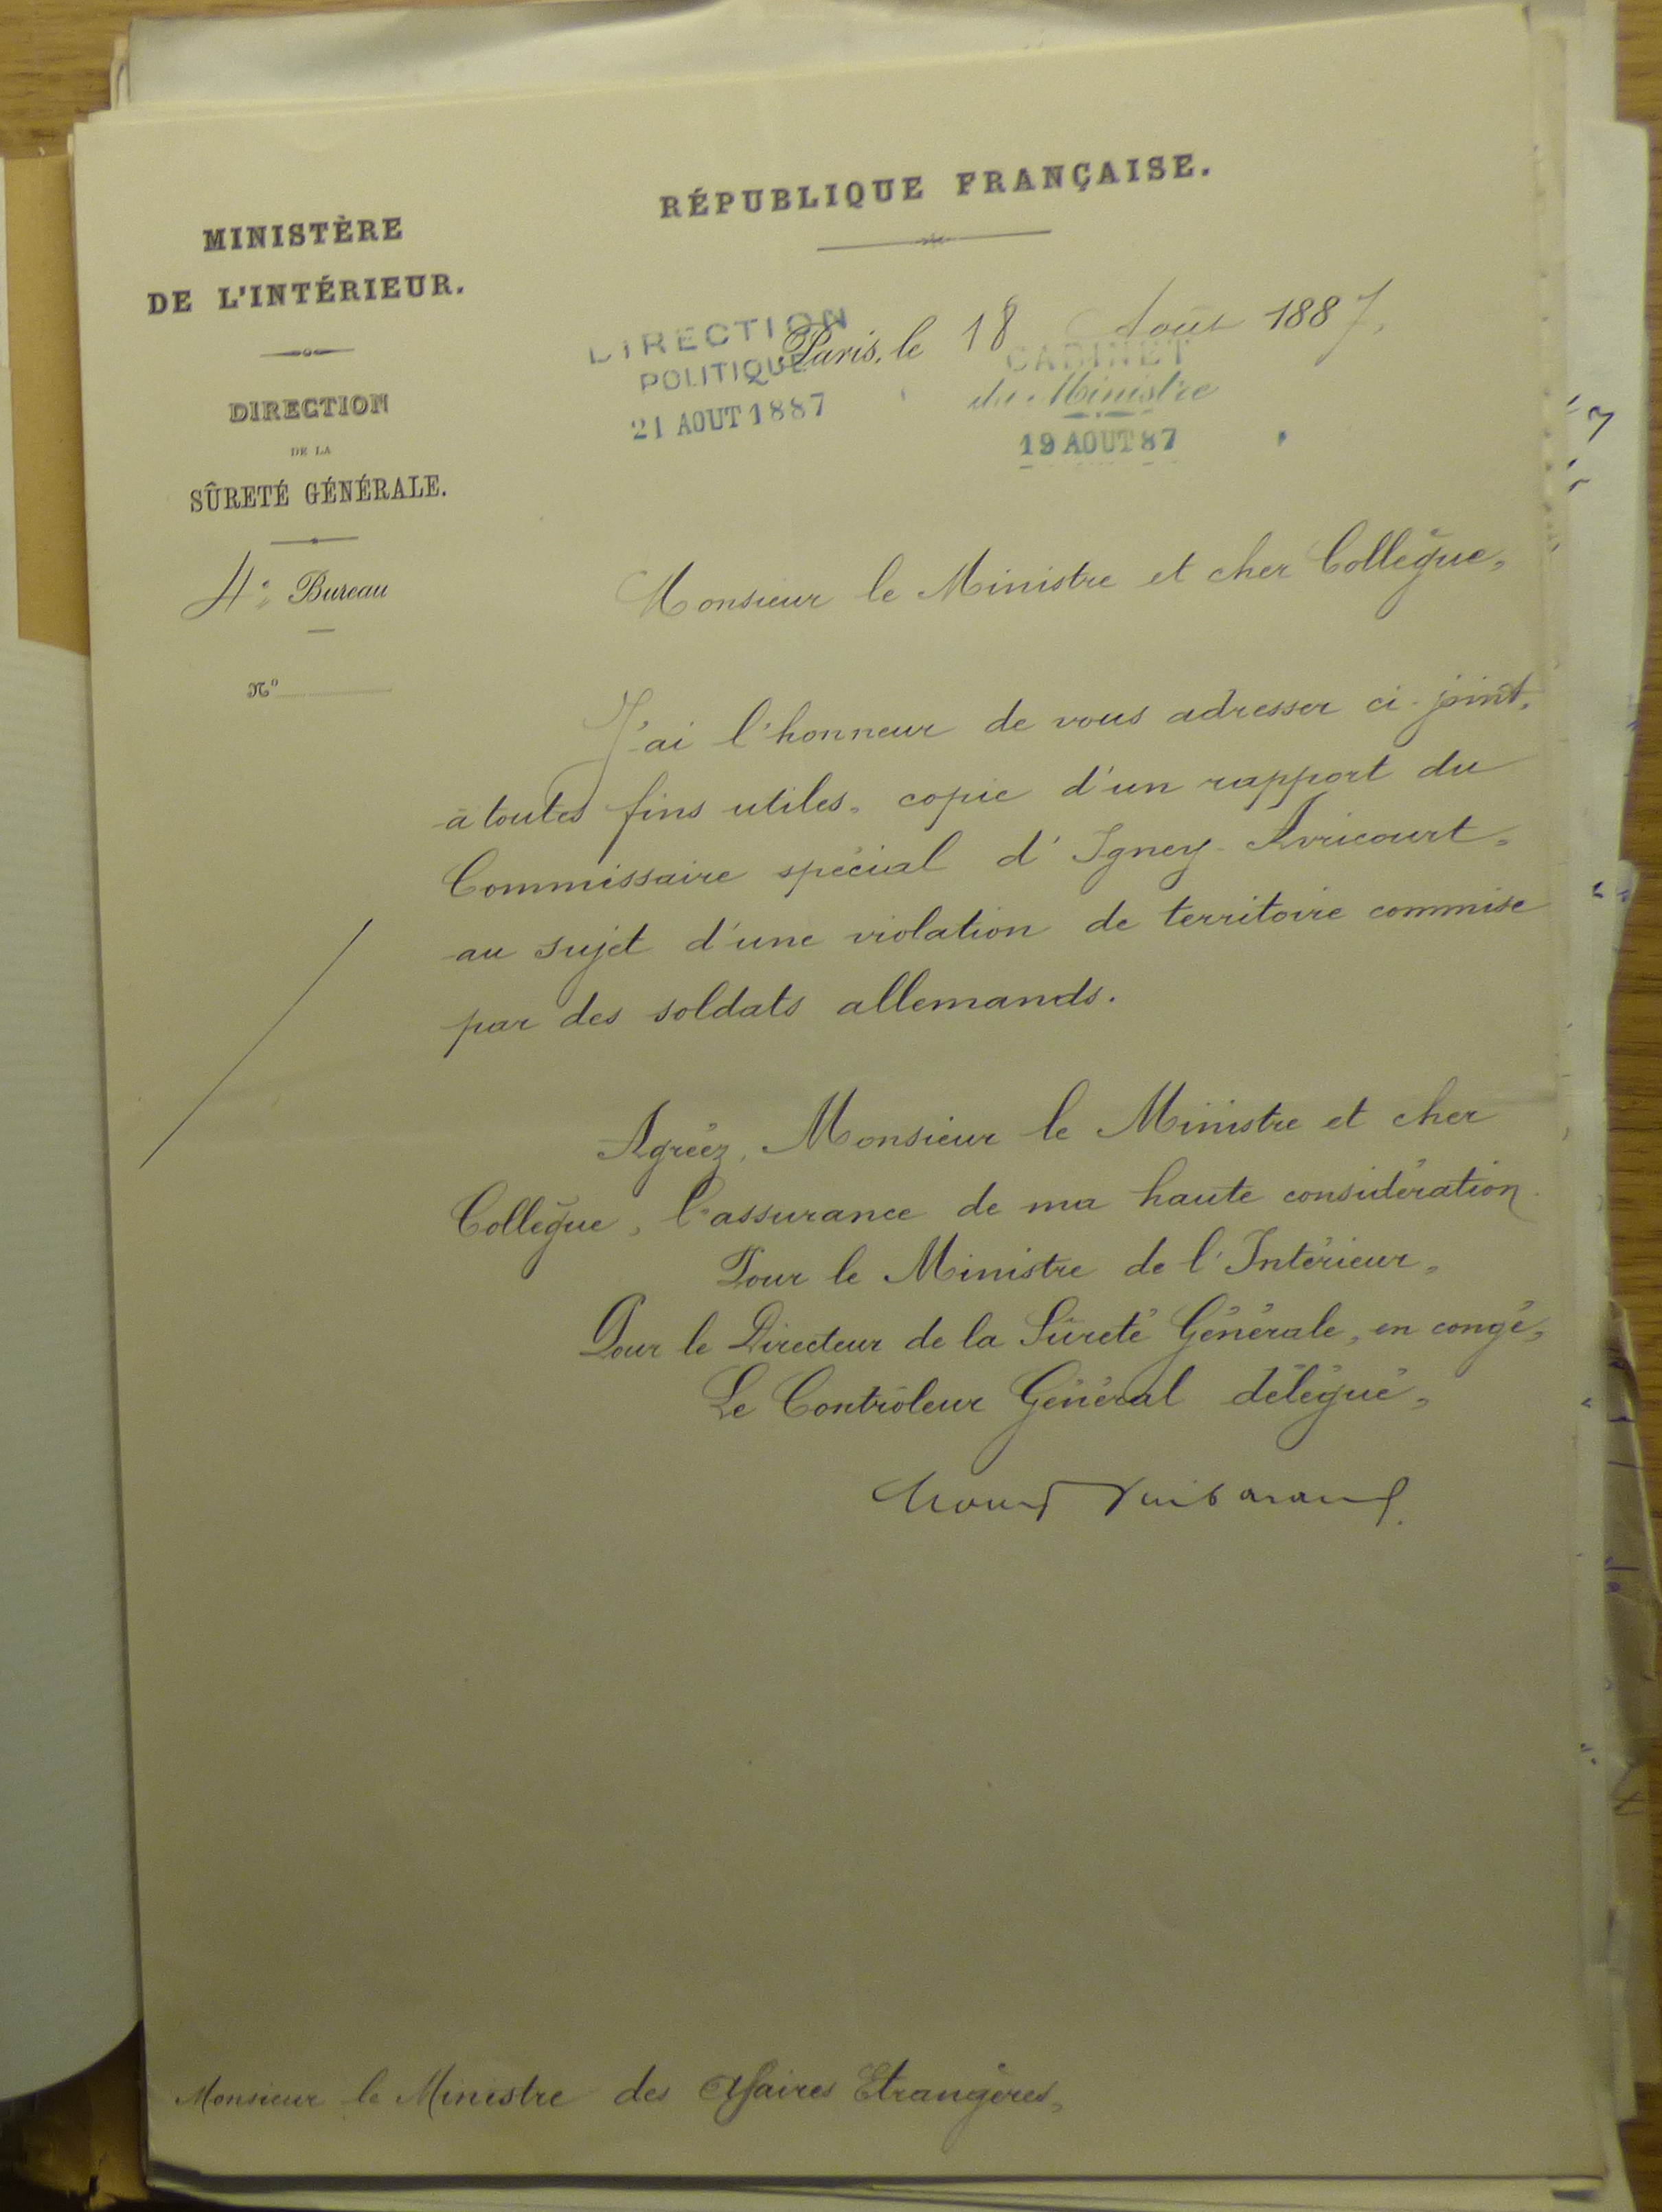 RÉPUBLIQUE FRANÇAISE.
MINISTÈRE
DE L'INTÉRIEUR.
DIRECTION
DE LA
SÛRETÉ GÉNÉRALE.
4e Bureau
No
Paris, le 18 Août 1887,
DIRECTION
POLITIQUE
21 AOUT 1887
CABINET
du Ministre
19 AOUT 87
Monsieur le Ministre et cher Collègue,
J'ai l'honneur de vous adresser ci-joint,
à toutes fins utiles, copie d'un rapport du
Commissaire spécial d'Igney-Avricourt,
au sujet d'une violation de territoire commise
par des soldats allemands.
Agréez, Monsieur le Ministre et cher
Collègue, l'assurance de ma haute considération.
Pour le Ministre de l'Intérieur,
Pour le Directeur de la Sûreté Générale, en congé,
Le Contrôleur Général délégué,
Monsieur le Ministre des Affaires Etrangères,